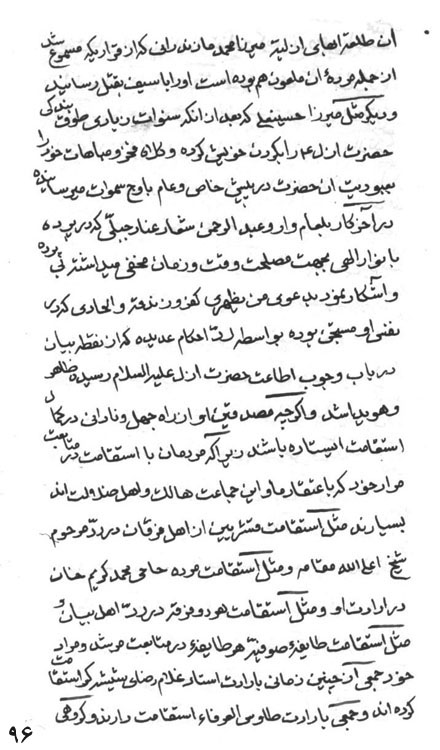 ان طلعة ابهای ازلیة میرزا محمد مازندرانی که از قراریکه مسموع شد
از جمله مردهٔ آن ملعون هم بوده است او را با سیف بقتل رسانید
و دیگر مثل میرزا حسینعلی که بعد از انکه سنوات زیادی طوق بندگی
حضرت ازل ع را بکردن خویش کرده و کلاه فخر و مباهات خود را
بعبودیت ان حضرت در پیش خاص و عام باوج سموات میرسانیده
در آخر کار بلعام وار و عبد الرحمن شعار عناد جبلّی که در بوده
با نوار الهی بجهت مصلحت وقت و زمان مخفی میداشته بوده
و اشکار نمود بدعوی من یظهری کفر و زندقة و الحادی که در
نفس او مسجّی بوده بواسطه ردّ احکام عدیده که از نقطه بیان
در باب وجوب اطاعت حضرت ازل علیه السلام رسیده ظاهر
و هویدا باشد و اگرچه مصدقین او از راه جهل و نادانی در کمال
استقامت ایستاده باشند زیرا که مردمان با استقامت در متابعت
مراد خود که باعتقاد ما و این جماعت هالک و اهل ضلالت اند
بسیارند مثل استقامت متشرعین از اهل فرقان در ردّ مرحوم
شیخ اعلی الله مقامه و مثل استقامت مرده حاجی محمد کریم خان
در ارادت او و مثل استقامت هر دو فرقه در ردّ اهل بیان و
مثل استقامت طایفهٔ صوفیّه هر طایفهٔ در متابعت مرشد و مراد
خود جمعی آن چنین زمانی بارادت استاد غلام رضای شیشه گر استقامت
کرده اند و جمعی بارادت طاوس العرفاء استقامت دارند و گروهی
۹۶